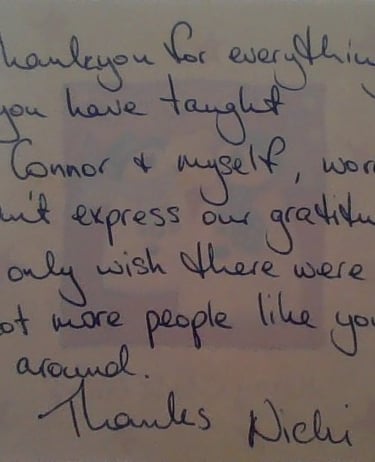 hankyou for everythin
you have taught
Connor & myself, wor
n't express our gratitu
only wish there were
ot more people like you
around.
Thanks Nicki